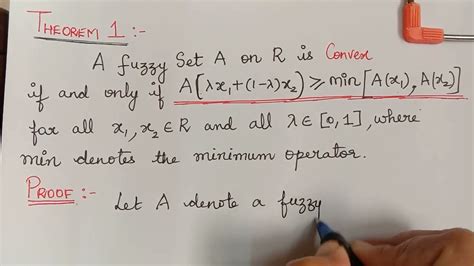 THEOREM 1 :-
A fuzzy Set A on R is Convex
if and only if A(λx₁+(1-λ)x₂) ≥ min[A(x₁), A(x₂)]
for all x₁, x₂ ∈ R and all λ ∈ [0, 1], where
min denotes the minimum operator.
PROOF :- Let A denote a fuzzy